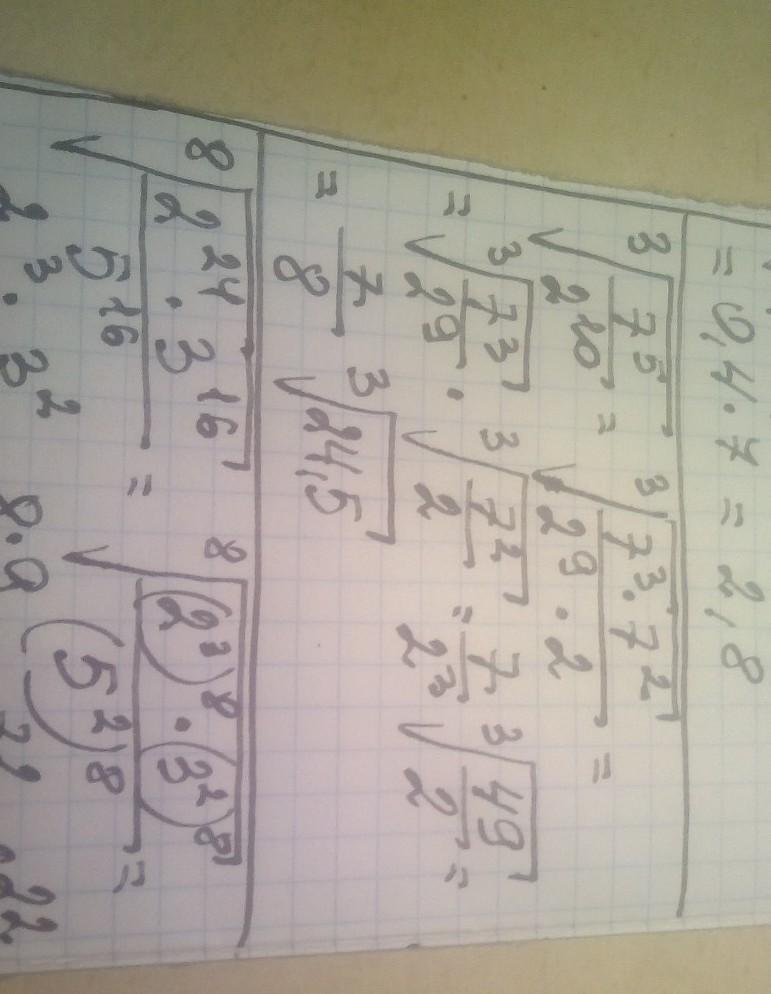 = 0,4 · 7 = 2,8
∛(7⁵/2¹⁰) = ∛((7³ · 7²)/(2⁹ · 2)) =
= ∛(7³/2⁹) · ∛(7²/2) = 7/2³ ∛(49/2) =
= 7/8 ∛24,5
⁸√((2²⁴ · 3¹⁶)/5¹⁶) = ⁸√(((2³)⁸ · (3²)⁸)/(5²)⁸) =
2³ · 3² 8 · 9